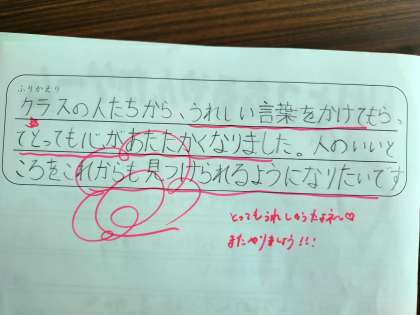 ふりかえり
クラスの人たちから、うれしい言葉をかけてもらっ
てとっても心があたたかくなりました。人のいいと
ころをこれからも見つけられるようになりたいです
とってもうれしかったよネ〜♡
またやりましょう!!